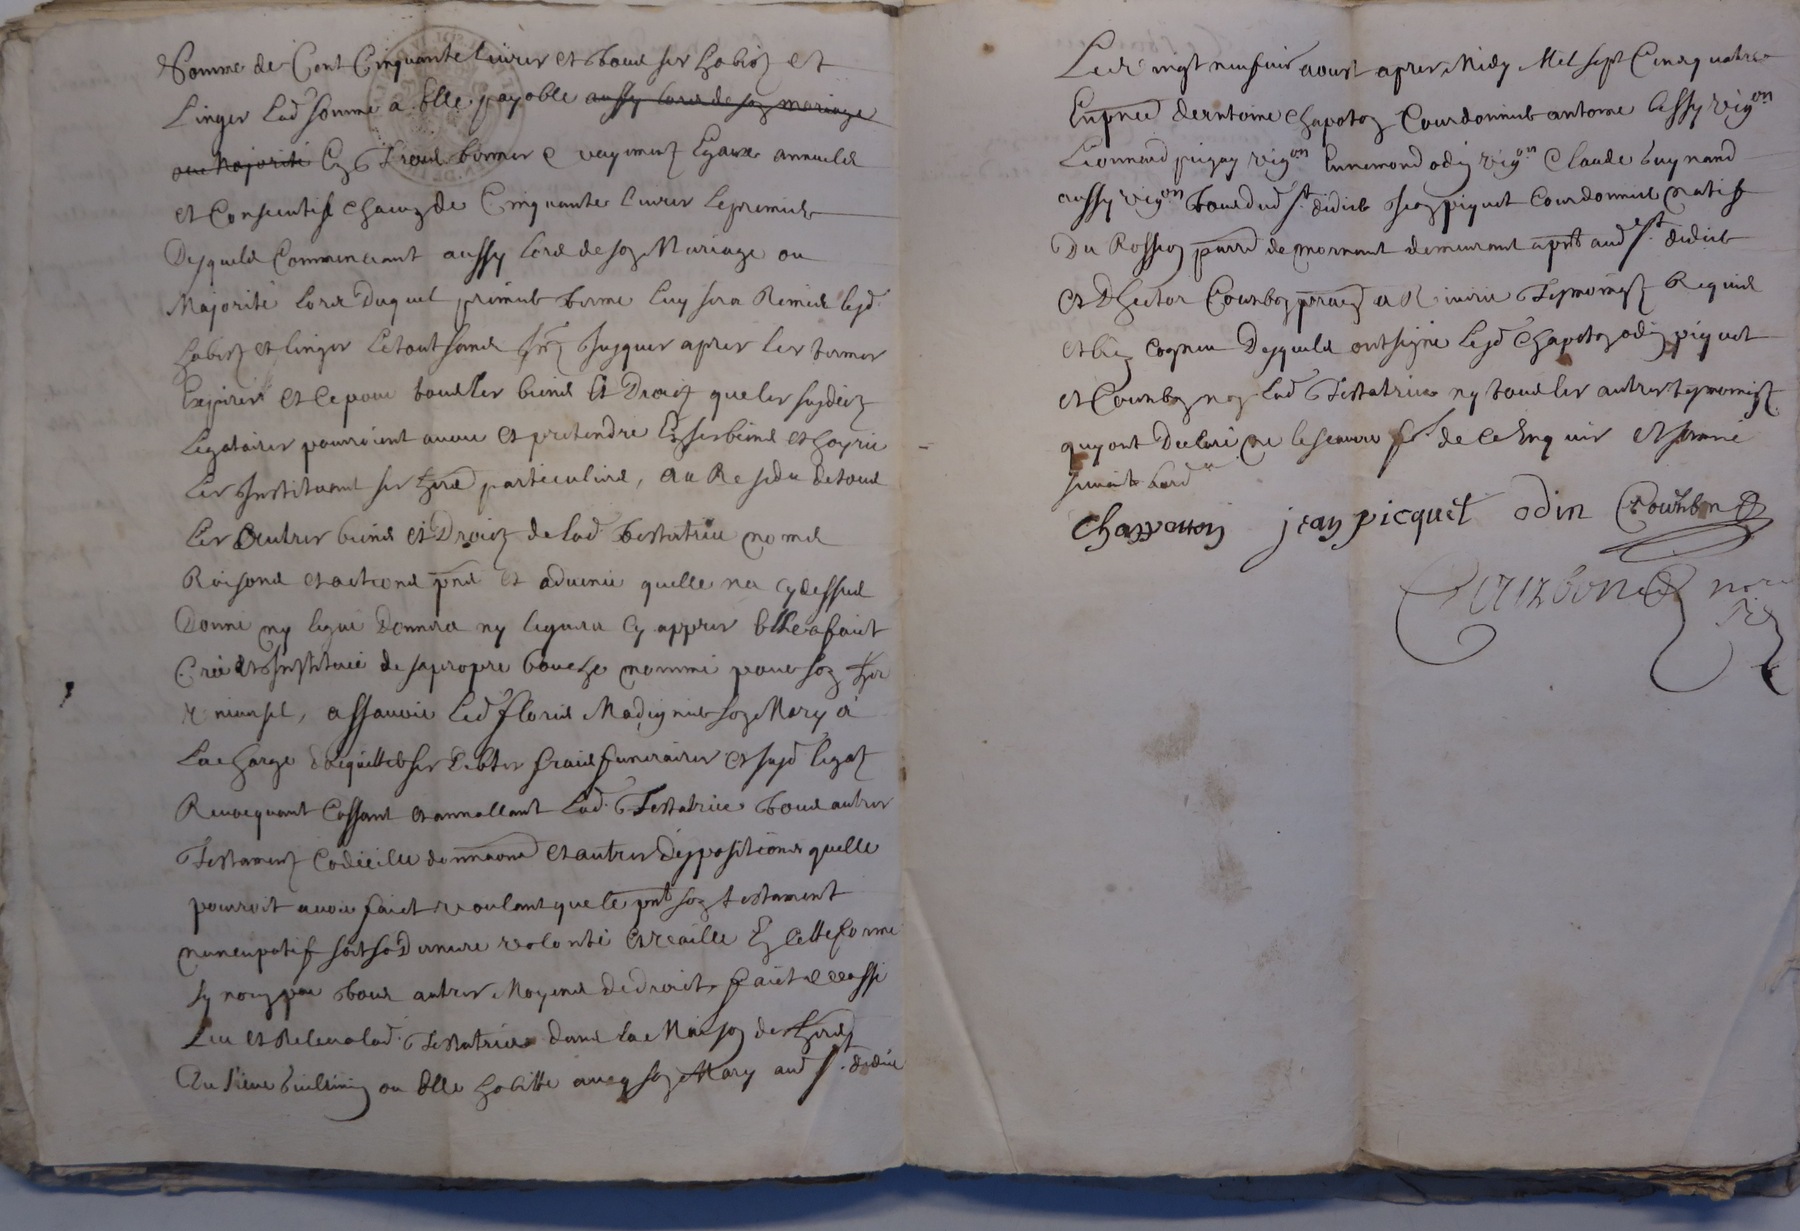 Somme de Cent Cinquante livres et tous ses habitz et
Linges lad somme a Elle payable aussy lors de son mariage
ou majorité En trois termes & payementz Egaux annuels
et Consecutifs chacun de Cinquante livres le premier
Desquels Commencant aussy lors de son Mariage ou
Majorité lors Duquel premier terme luy sera Remis lesd
habitz et linges le tout sans jusques apres les termes
Expirés et ce pour tous les biens et Droitz que les susdictz
Legataires pourroient avoir et pretendre En ses biens et hoyrie
Les Instituant ses hers particuliers, Au Residu de tous
Les Autres biens et Droictz de lad testatrice noms
Raisons et actions pnts et advenir quelle na cy dessus
Donné ny legué donnera ny leguera cy appres Elle a faict
Créé et Institué de sa propre bouche nommé pour son her
universel, assavoir led floris Madignier son Mary à
La charge dacquitter ses debtes frais funeraires et susd legatz
Revocquant Cassant et annullant lad. Testatrice tous autres
Testamentz Codicille donnaons et autres disppositions quelle
pourroit avoir faict voulant que le pnt son testament
nuncupatif soit sa Derniere volonté et vaille En cette forme
sy non par tous autres Moyens de droict, faict & passé
Leu et Releu a lad. Testatrice dans la Maison des hers
Du sieur ou Elle habitte avecq son Mary aud St. didier
Le vingt neufvie aoust apres Midy Mil sept Cens quatre
En pnce dantoine chapoton Courdonnier antoine vigon
Leonnard vigon Ennemond odin vigon Claude
aussy vigon tous dud St. didier Jean piquet Courdonnier natif
Du Rossion parr de mornant demeurant apnt aud St. didier
et dhector Courbon a Riverie Tesmoingtz Requis
et bien Cogneu Desquels ont signé lesd chapoton odin piquet
et Courbon non lad Testatrice ny tous les autres tesmoingtz
quy ont Declaré ne le scavoir fe de ce Enquis et sommé
suivant lord
chappotton jean picquet odin Courbon
Courbon nore